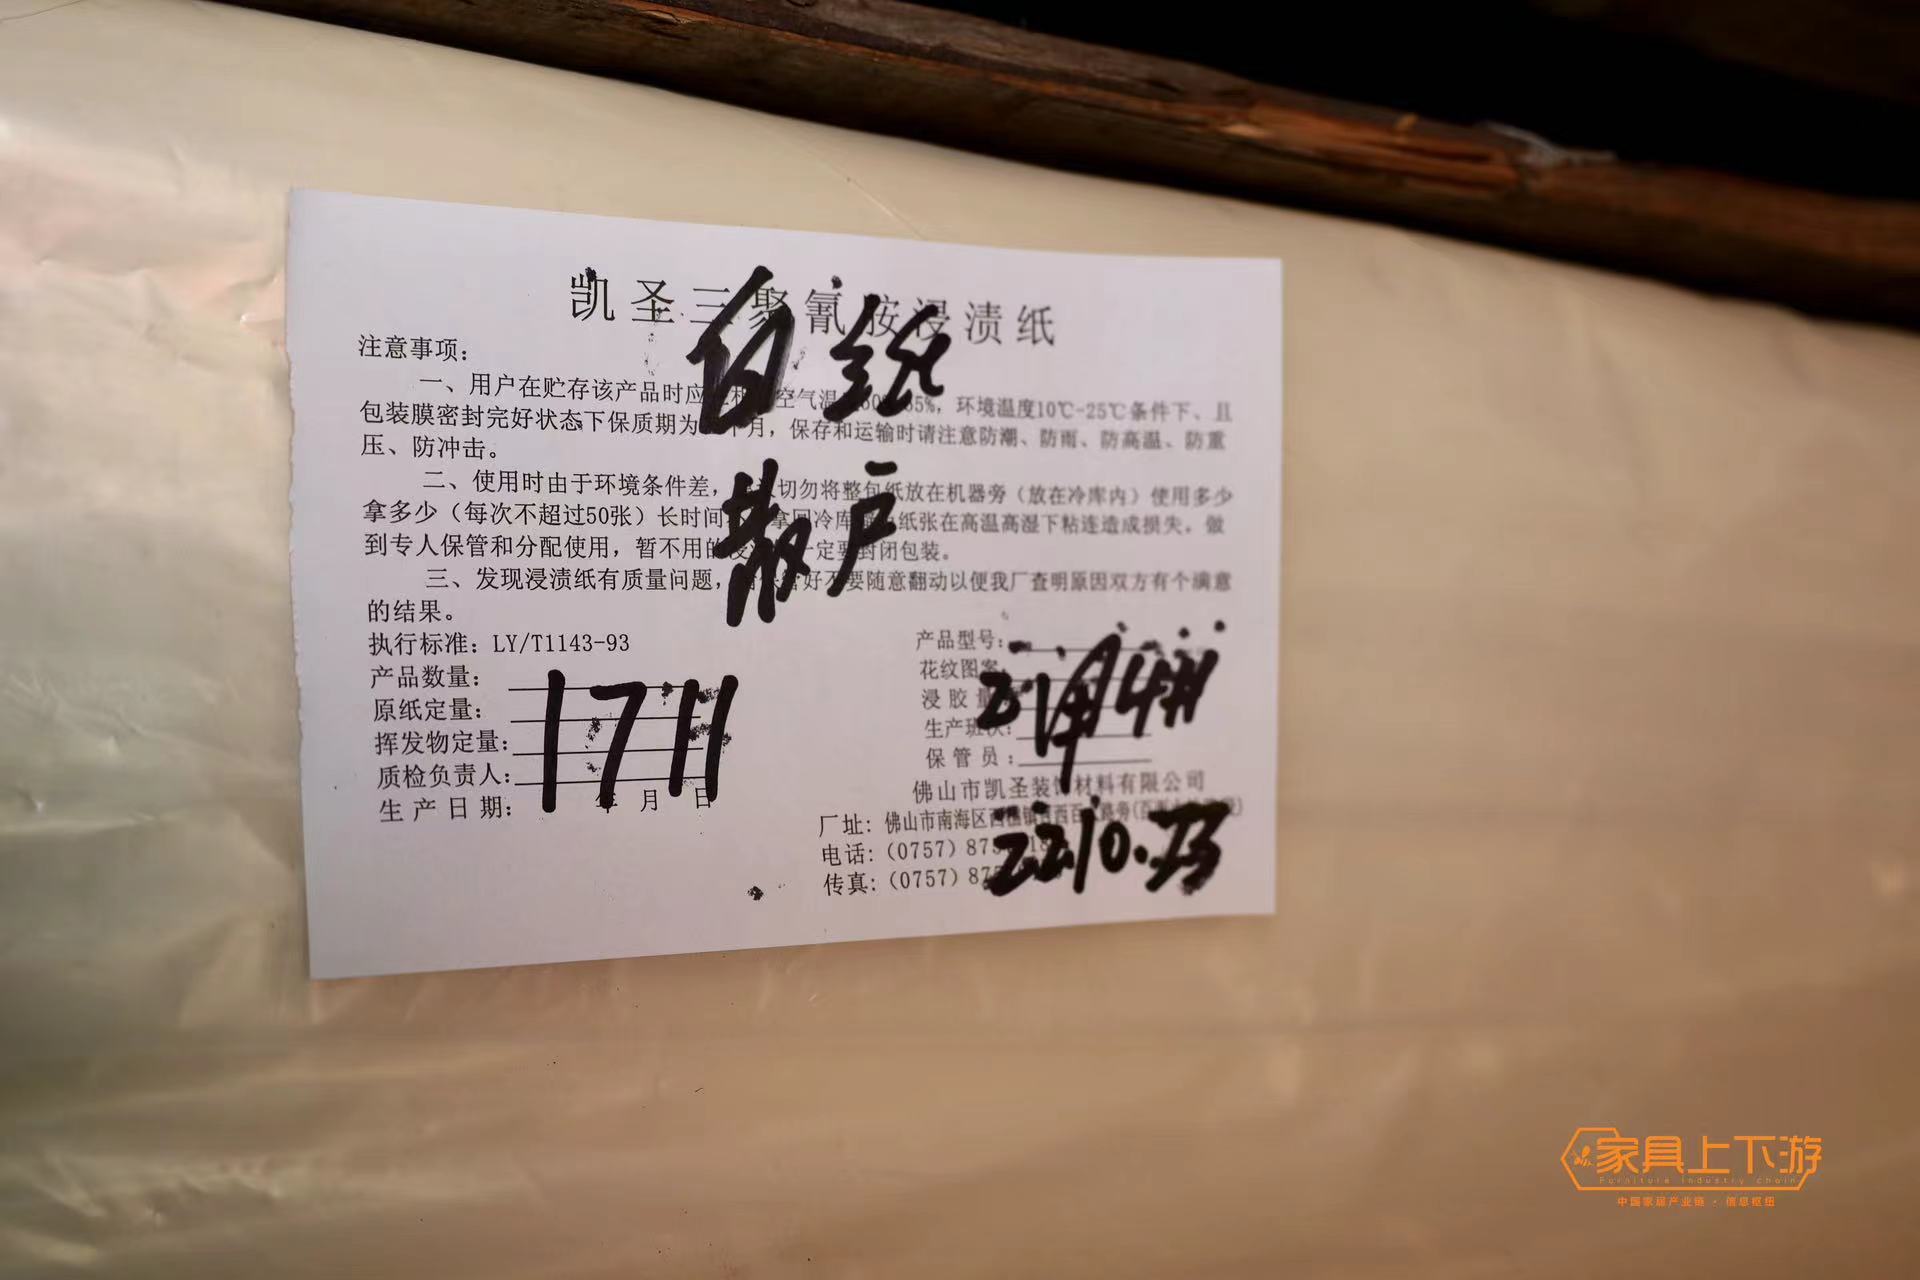 凯圣三聚氰按浸渍纸
注意事项：
一、用户在贮存该产品时应 空气 85%，环境温度10℃-25℃条件下、且
包装膜密封完好状态下保质期为 个月，保存和运输时请注意防潮、防雨、防高温、防重
压、防冲击。
二、使用时由于环境条件差， 切勿将整包纸放在机器旁（放在冷库内）使用多少
拿多少（每次不超过50张）长时间 拿回冷库 纸张在高温高湿下粘连造成损失。做
到专人保管和分配使用，暂不用的浸 一定要封闭包装。
三、发现浸渍纸有质量问题， 保管好不要随意翻动以便我厂查明原因双方有个满意
的结果。
白纸
散户
执行标准：LY/T1143-93
产品数量：
原纸定量：
挥发物定量：
质检负责人：
生产日期： 年 月 日
1711
产品型号：
花纹图案：
浸胶量
生产班次：
保管员：
佛山市凯圣装饰材料有限公司
厂址：佛山市南海区西樵镇 西百 路旁
电话：（0757）87
传真：（0757）87
22.10.
家具上下游
Furniture industry chain
中国家居产业链·信息枢纽